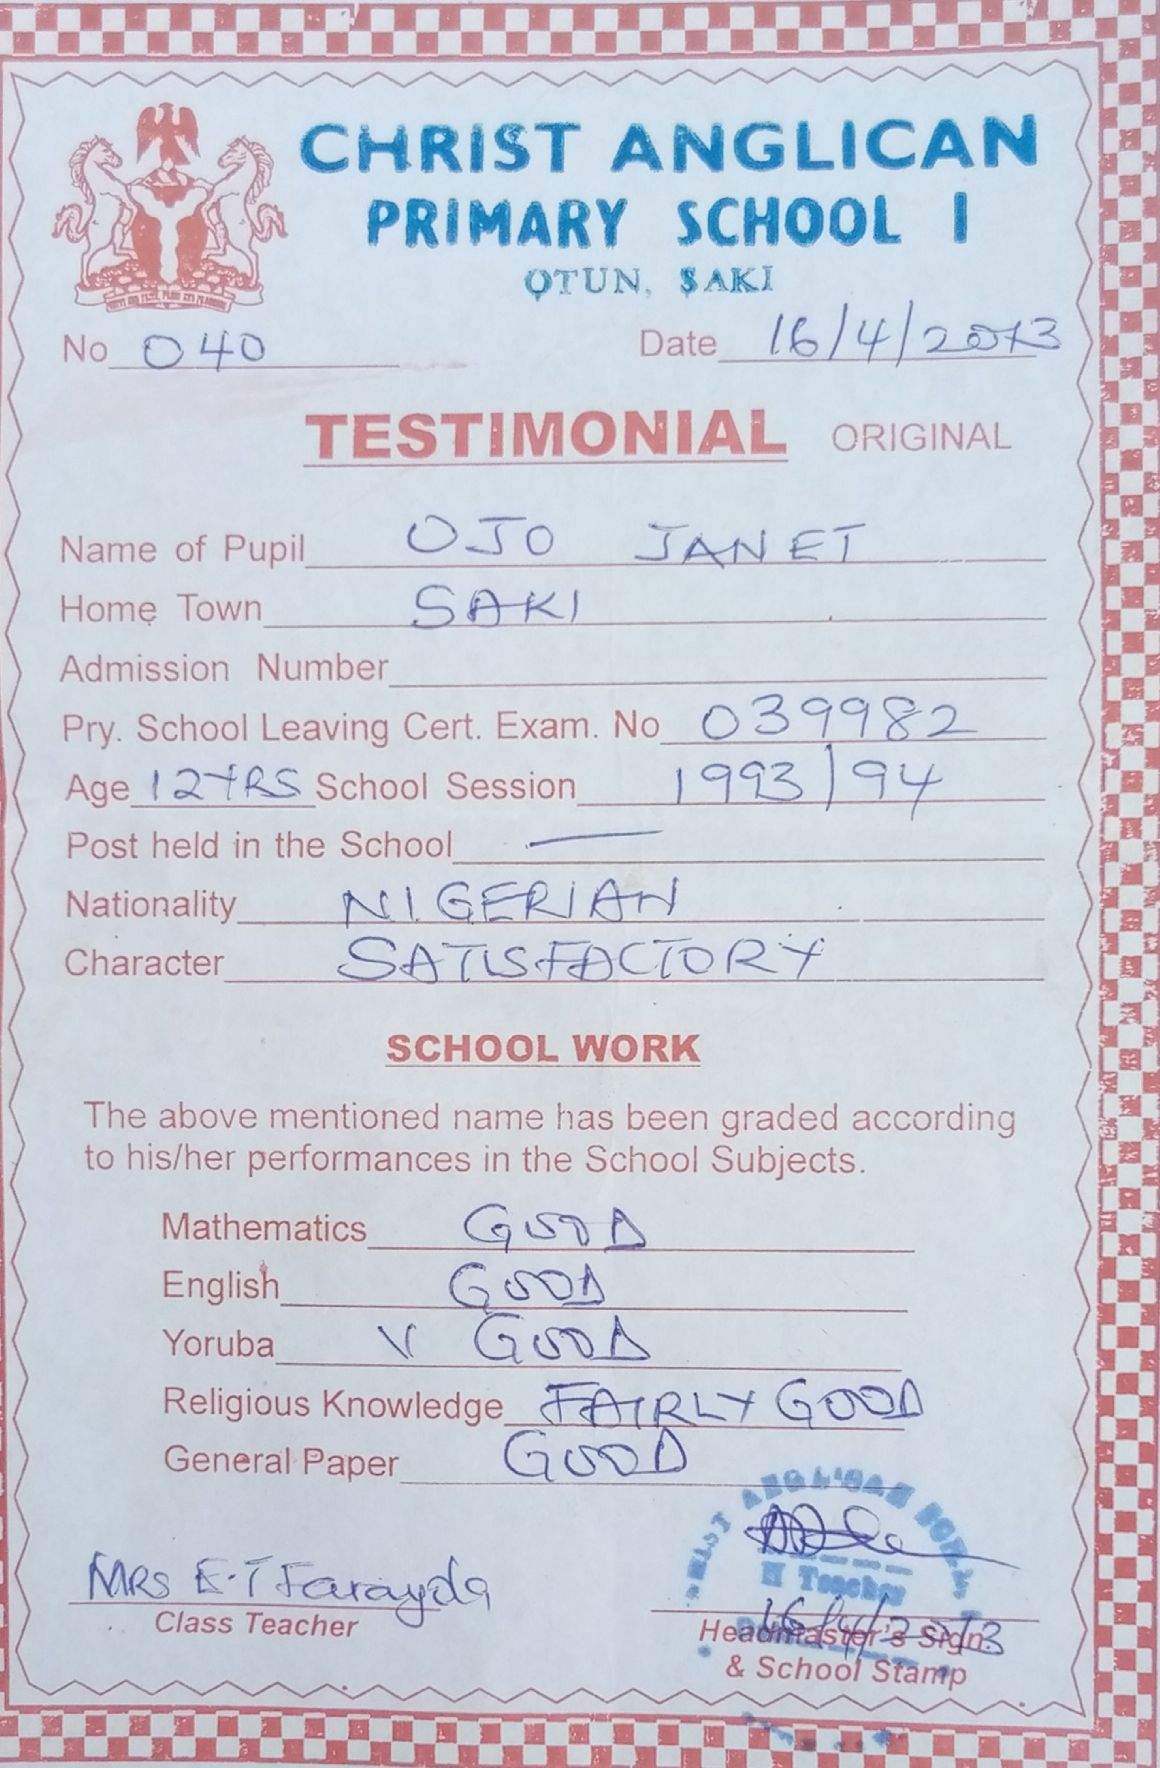 CHRIST ANGLICAN
PRIMARY SCHOOL I
OTUN, SAKI
No 040 Date 16/4/2013
TESTIMONIAL ORIGINAL
Name of Pupil OJO JANET
Home Town SAKI
Admission Number
Pry. School Leaving Cert. Exam. No 039982
Age 12YRS School Session 1993/94
Post held in the School —
Nationality NIGERIAN
Character SATISFACTORY
SCHOOL WORK
The above mentioned name has been graded according
to his/her performances in the School Subjects.
Mathematics GOOD
English GOOD
Yoruba V GOOD
Religious Knowledge FAIRLY GOOD
General Paper GOOD
ANGLICAN
H Teacher
MRS E.T Farayola
Class Teacher
16/4/2013
Headmaster's Sign.
& School Stamp